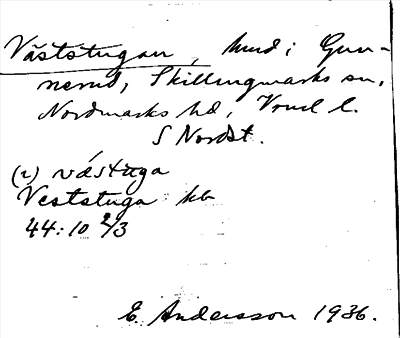 Väststugan, hmd i Gun-
nerud, Skillingmarks sn,
Nordmarks hd, Vrml l.
S Nordst.
(i) västuga
Veststuga kb
44:10 2/3
E. Andersson 1936.